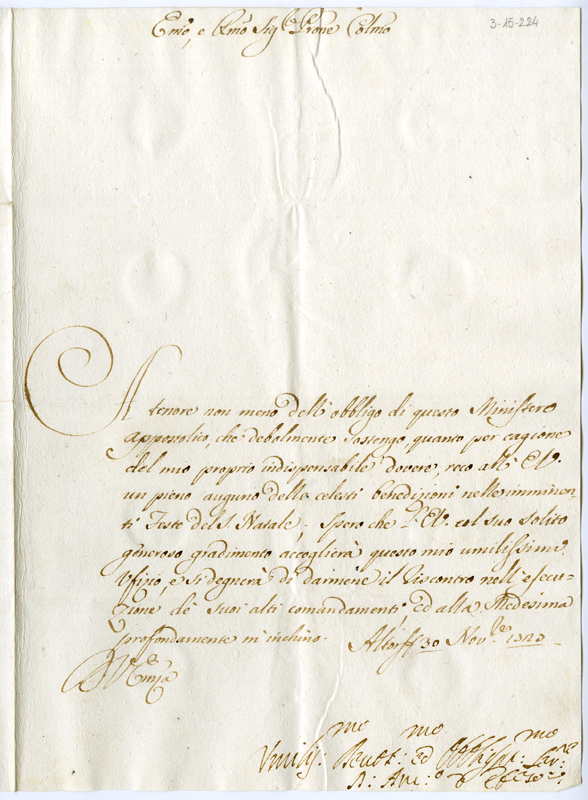 Emo, e Rmo Sigr Prone Colmo
3-15-224
A tenore non meno dell' obbligo di questo Ministero
Appostolico, che debolmente sostengo, quanto per cagione
del mio proprio indispensabile dovere, reco all' E.V.
un pieno augurio delle celesti benedizioni nelle imminen
ti Feste del S. Natale; Spero che l'E.V. col suo solito
generoso gradimento accoglierà questo mio umilissimo
Ufizio, e si degnerà di darmene il riscontro nell' esecu-
zione de' suoi alti comandamenti, ed alla Medesima
profondamente m' inchino. Altorff 30 Novbre
Umilis:mo Devot:mo ed Obbligat:mo Serre